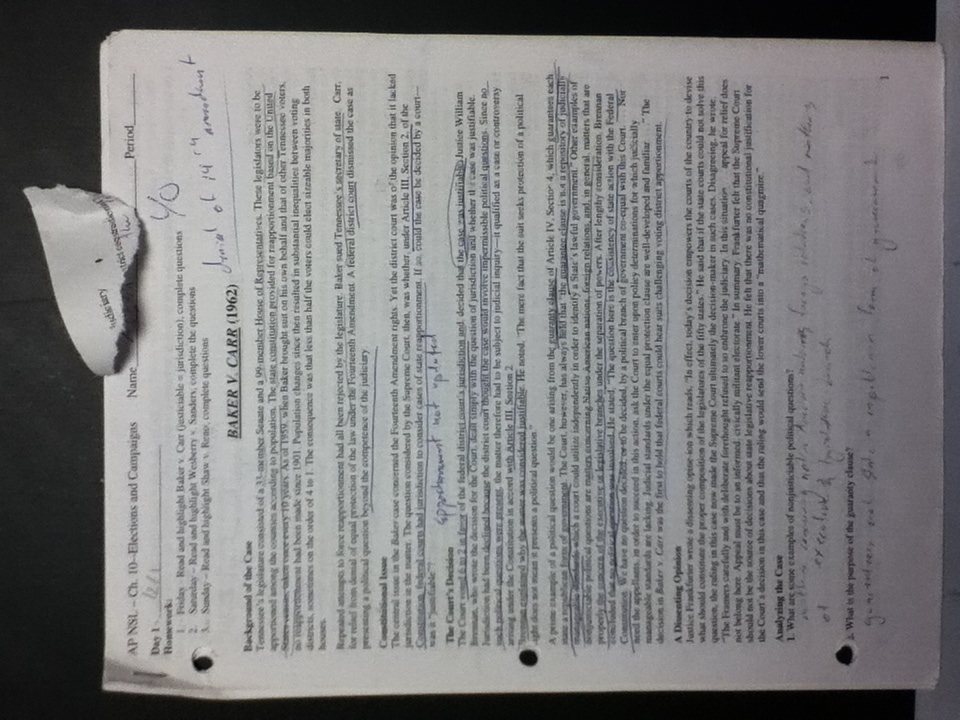 Judiciary
AP NSL – Ch. 10--Elections and Campaigns Name Period
Day 1
Homework:
1. Friday – Read and highlight Baker v. Carr (justiciable = jurisdiction), complete questions
2. Saturday – Read and highlight Wesberry v. Sanders, complete the questions
3. Sunday – Read and highlight Shaw v. Reno, complete questions
denial of 14th amendment
BAKER V. CARR (1962)
Background of the Case
Tennessee's legislature consisted of a 33-member Senate and a 99-member House of Representatives. These legislators were to be
apportioned among the counties according to population. The state constitution provided for reapportionment based on the United
States census, taken once every 10 years. As of 1959, when Baker brought suit on his own behalf and that of other Tennessee voters,
no reapportionment had been made since 1901. Population changes since then resulted in substantial inequalities between voting
districts, sometimes on the order of 4 to 1. The consequence was that less than half the voters could elect sizeable majorities in both
houses.
Repeated attempts to force reapportionment had all been rejected by the legislature. Baker sued Tennessee's secretary of state, Carr,
for relief from denial of equal protection of the law under the Fourteenth Amendment. A federal district court dismissed the case as
presenting a political question beyond the competence of the judiciary.
Constitutional Issue
The central issue in the Baker case concerned the Fourteenth Amendment rights. Yet the district court was of the opinion that it lacked
jurisdiction in the matter. The question considered by the Supreme Court, then, was whether, under Article III, Section 2, of the
Constitution, federal courts had jurisdiction to consider cases of state reapportionment. If so, could the case be decided by a court—
was it "justifiable"?
apportionment not updated
The Court's Decision
The Court voted 6 to 2 in favor of the federal district court's jurisdiction and, decided that the case was justifiable. Justice William
Brennan, who wrote the decision for the Court, dealt simply with the question of jurisdiction and whether the case was justifiable.
Jurisdiction had been declined because the district court thought the case would involve impermissible political questions. Since no
such political questions were present, the matter therefore had to be subject to judicial inquiry—it qualified as a case or controversy
arising under the Constitution in accord with Article III, Section 2.
Brennan explained why the matter was considered justifiable. He noted, "The mere fact that the suit seeks protection of a political
right does not mean it presents a political question."
A prime example of a political question would be one arising from the guaranty clause of Article IV, Section 4, which guarantees each
state a republican form of government. The Court, however, has always held that "the guarantee clause is not a repository of judicially
manageable standards which a court could utilize independently in order to identify a State's lawful government." Other examples of
nonjusticiable political questions are matters concerning Native American nations, foreign relations, and, in general, matters that are
properly the concern of the executive or legislative branches under the separation of powers. After lengthy consideration, Brennan
concluded that no political question was involved. He stated, "The question here is the consistency of state action with the Federal
Constitution. We have no question decided, or to be decided, by a political branch of government co-equal with this Court. . . . Nor
need the appellants, in order to succeed in this action, ask the Court to enter upon policy determinations for which judicially
manageable standards are lacking. Judicial standards under the equal protection clause are well-developed and familiar. . . ." The
decision in Baker v. Carr was the first to hold that federal courts could hear suits challenging voting district apportionment.
A Dissenting Opinion
Justice Frankfurter wrote a dissenting opise-ion which reads, "In effect, today's decision empowers the courts of the country to devise
what should constitute the proper composition of the legislatures of the fifty states." He said that if the state courts could not solve this
question, the ruling in this case now made the Supreme Court ultimately the decision-maker in such cases. Disagreeing, he wrote,
"The Framers carefully and with deliberate forethought refused to so enthrone the judiciary. In this situation . . . appeal for relief does
not belong here. Appeal must be to an informed, civically militant electorate." In summary, Frankfurter felt that the Supreme Court
should not be the source of decisions about state legislative reapportionment. He felt that there was no constitutional justification for
the Court's decision in this case and that the ruling would send the lower courts into a "mathematical quagmire."
Analyzing the Case
1. What are some examples of nonjusticiable political questions?
matters concerning native American nations, foreign relations, and matters
of executive & legislative branch
2. What is the purpose of the guaranty clause?
guarantees each state a republican form of government
1